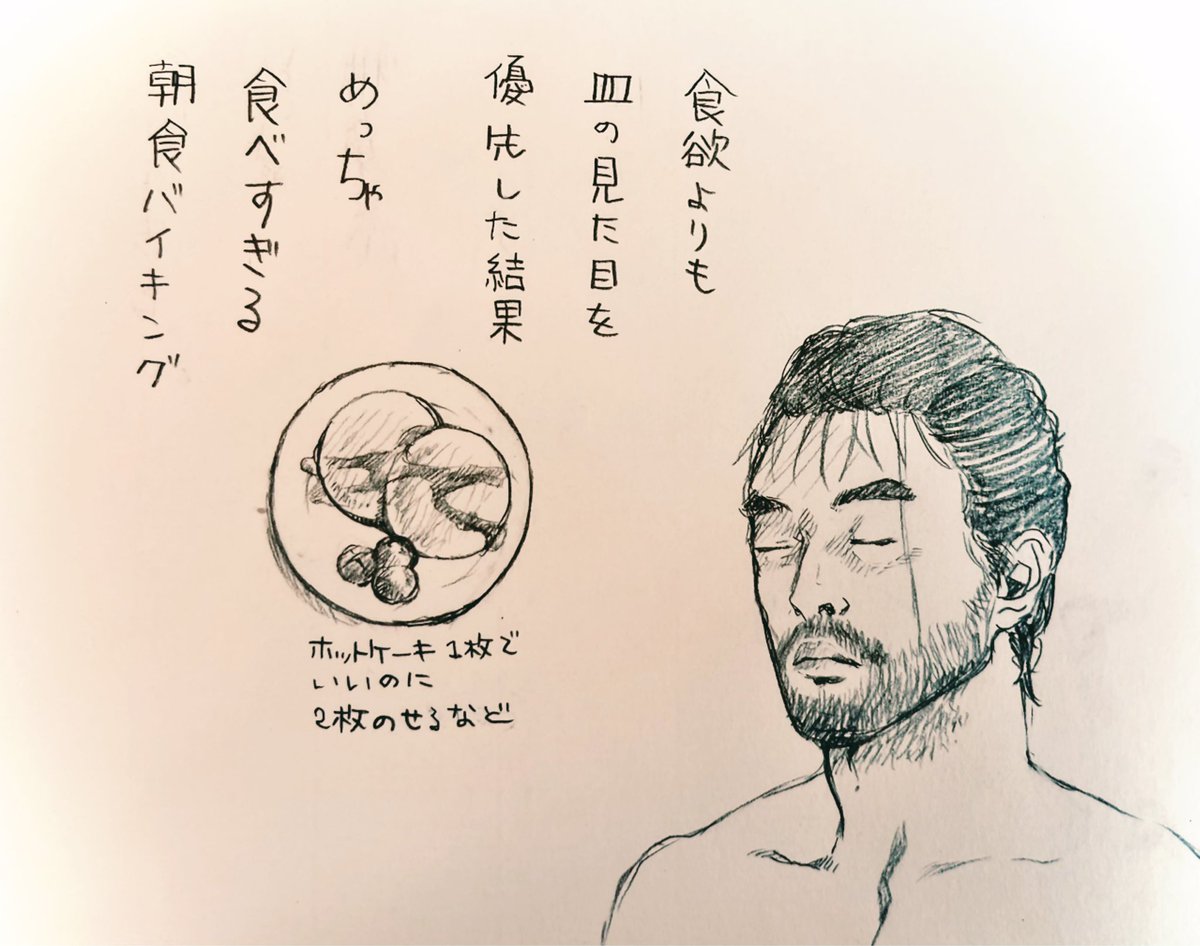 食欲よりも
皿の見た目を
優先した結果
めっちゃ
食べすぎる
朝食バイキング
ホットケーキ1枚で
いいのに
2枚のせるなど